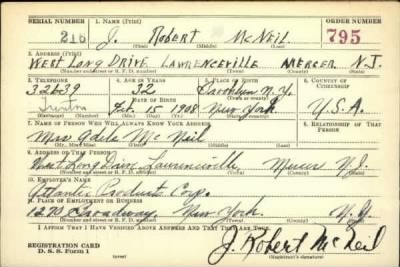 SERIAL NUMBER 1. NAME (Print) ORDER NUMBER
216 J. ROBERT McNEIL 795
(First) (Middle) (Last)
2. ADDRESS (Print)
WEST LONG DRIVE LAWRENCEVILLE MERCER N.J.
(Number and street or R. F. D. number) (Town) (County) (State)
3. TELEPHONE 4. AGE IN YEARS 5. PLACE OF BIRTH 6. COUNTRY OF CITIZENSHIP
32439 32 Brooklyn N.Y.
Trenton DATE OF BIRTH
Feb. 10 1908 New York U.S.A.
(Exchange) (Number) (Mo.) (Day) (Yr.) (State or country)
7. NAME OF PERSON WHO WILL ALWAYS KNOW YOUR ADDRESS 8. RELATIONSHIP OF THAT PERSON
Mrs. Adele McNeil
(Mr., Mrs., Miss) (First) (Middle) (Last)
9. ADDRESS OF THAT PERSON
West Long Drive Lawrenceville, Mercer N.J.
(Number and street or R. F. D. number) (Town) (County) (State)
10. EMPLOYER'S NAME
Atlantic Products Corp.
11. PLACE OF EMPLOYMENT OR BUSINESS
1270 Broadway New York. N.Y.
(Number and street or R. F. D. number) (Town) (County) (State)
I AFFIRM THAT I HAVE VERIFIED ABOVE ANSWERS AND THAT THEY ARE TRUE.
REGISTRATION CARD
D. S. S. Form 1 J. Robert McNeil
(Registrant's signature)